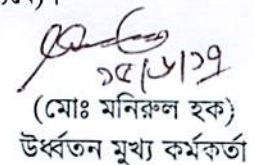 ১৫/৬/১৭
(মোঃ মনিরুল হক)
উর্ধ্বতন মুখ্য কর্মকর্তা